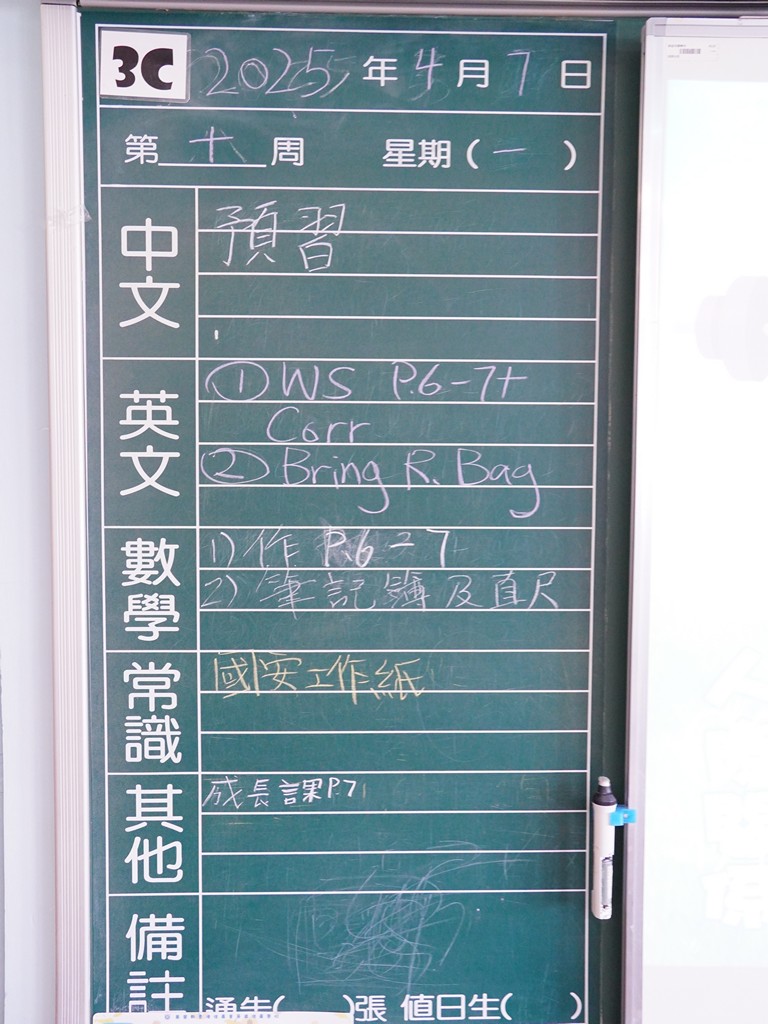 3C 2025年4月7日
第十周 星期(一)
中文
預習
英文
① WS P.6-7+
Corr
② Bring R. Bag
數學
1) 作 P.6-7
2) 筆記簿及直尺
常識
國安工作紙
其他
成長課P.7
備註
通告( )張 值日生( )